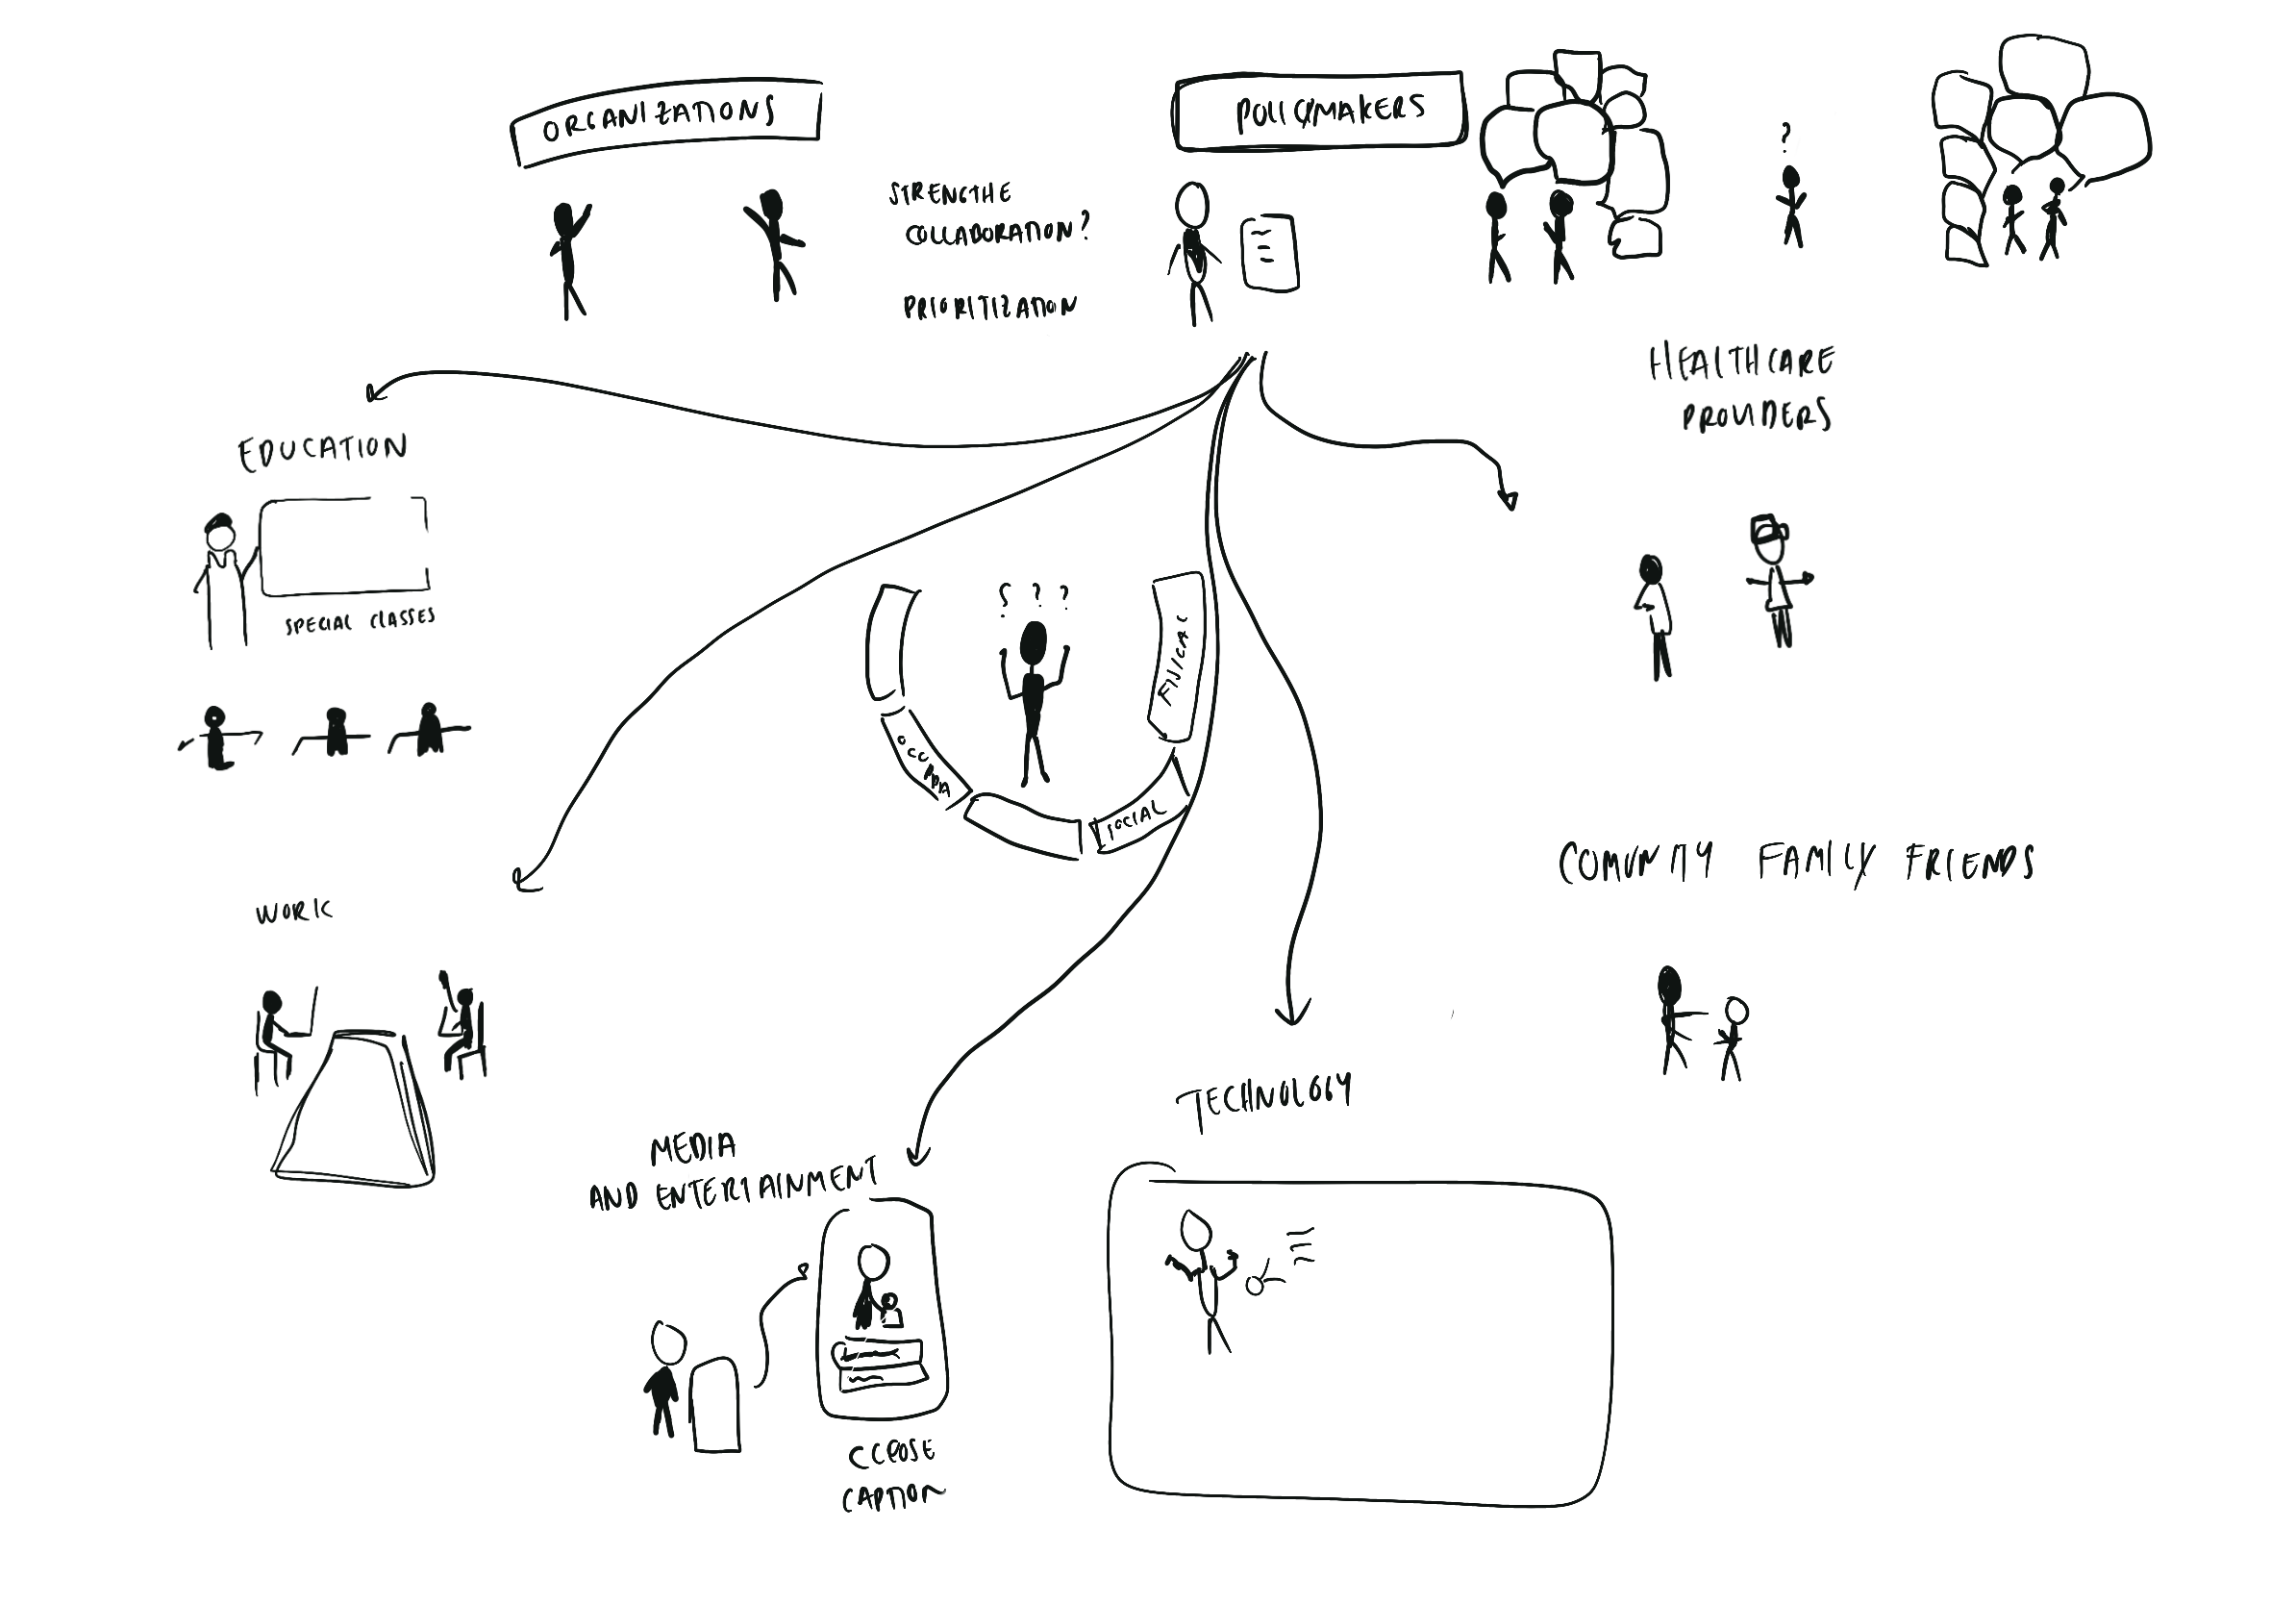 ORGANIZATIONS
POLICYMAKERS
?
STRENGTHE
COLLABORATION?
PRIORITIZATION
HEALTHCARE
PROVIDERS
EDUCATION
SPECIAL CLASSES
? ? ?
FISICAL
SOCIAL
COMUNITY FAMILY FRIENDS
WORK
TECHNOLOGY
MEDIA
AND ENTERTAINMENT
CAPTION